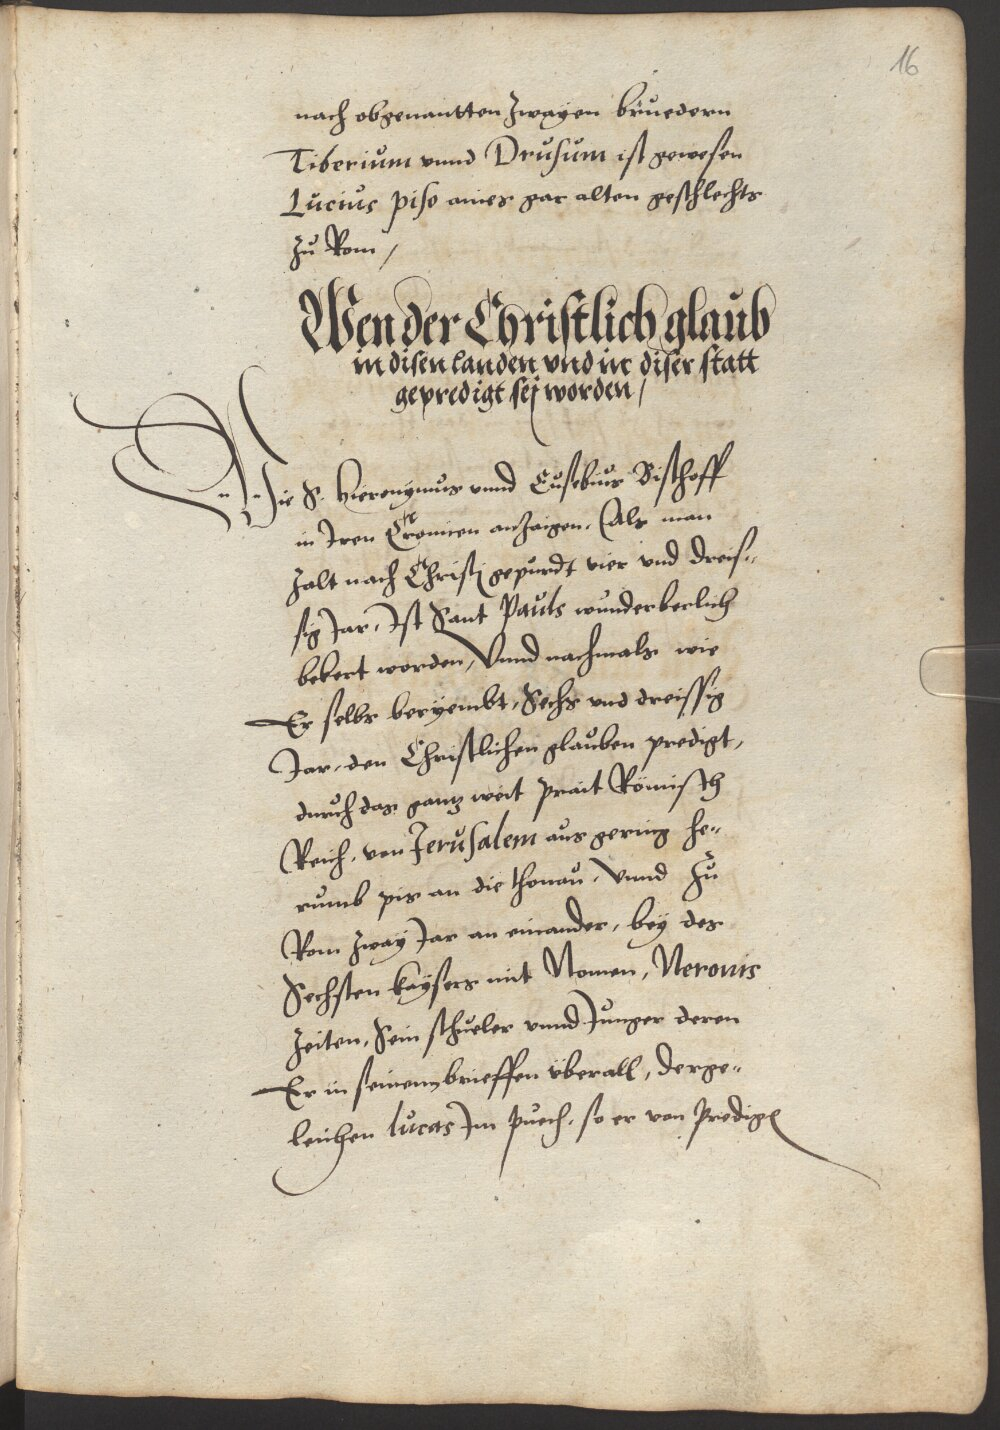 16
nach obgenantten zwayen brüedern
Tiberium vnnd Drusum ist gewesen
Lucius piso aines gar alten geschlechts
zu Rom /
Wen der Christlich glaub
in disen landen vnd in diser statt
gepredigt sej worden /
Wie S. Hieronymus vnnd Eusebius Bischoff
in Iren Cronicen anzaigen. Als man
zalt nach Christj gepurdt vier vnd dreis-
sig Jar, Ist Sant Pauls wunderberlich
bekert worden, Vnnd nachmals wie
Er selbs beryembt, Sechs vnd dreissig
Jar, den Christlichen glauben predigt,
durch das gantz weit prait Römisch
Reich, von Jerusalem aus gering he-
rumb pis an die thonau, Vnnd zu
Rom zway Jar an einander, bey des
Sechsten kaysers mit Nomen, Neronis
zeiten, Sein schueler vnnd Junger deren
Er in seinenn brieffen überall, derge-
leichen lucas Im puech, so er von Predigt